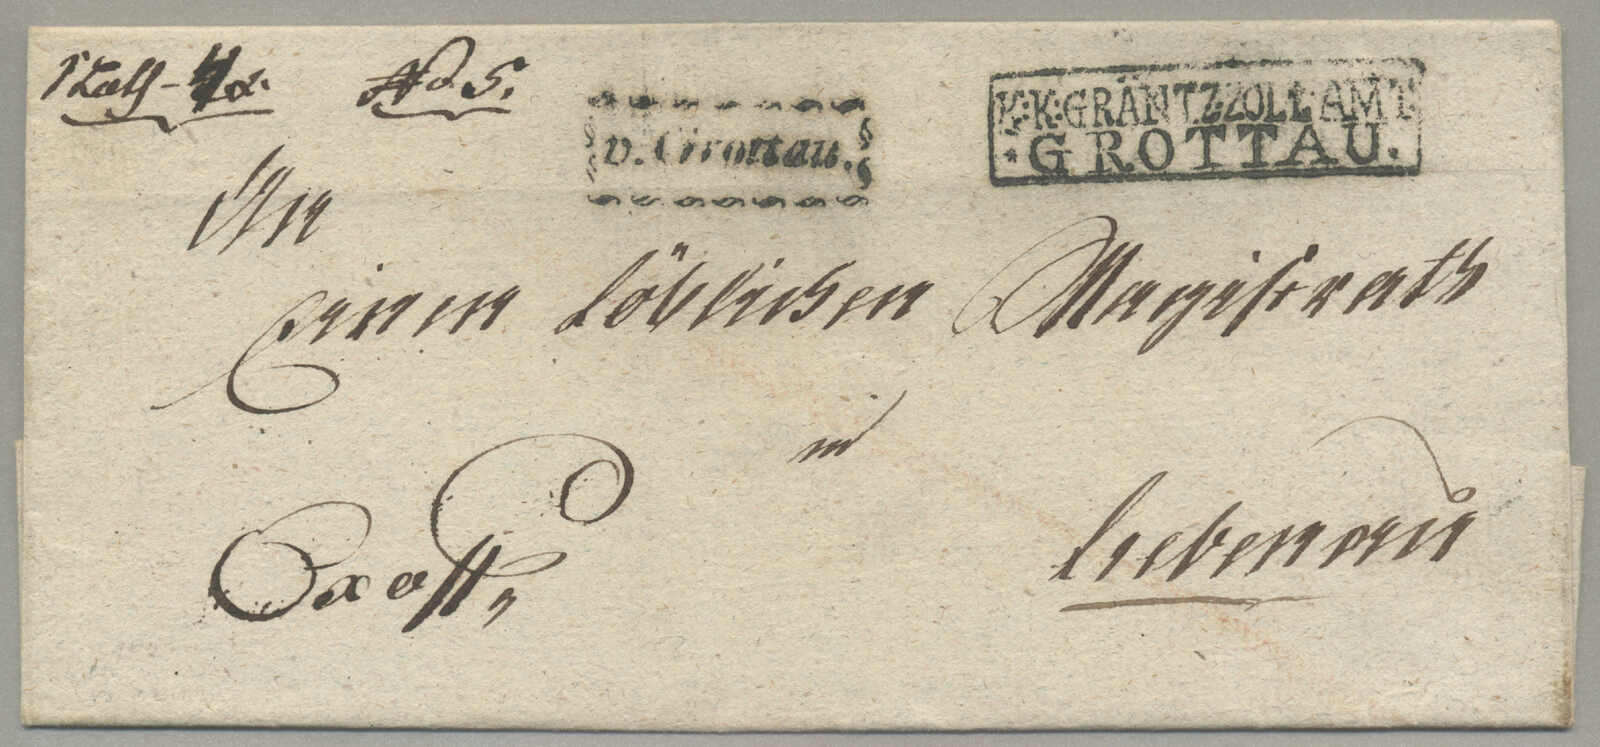 No. 5.
v. Grottau.
K:K:GRÄNTZ:ZOLL:AMT:
GROTTAU.
An
Einen Löblichen Magistrath
in
Liebenau
Ex offo